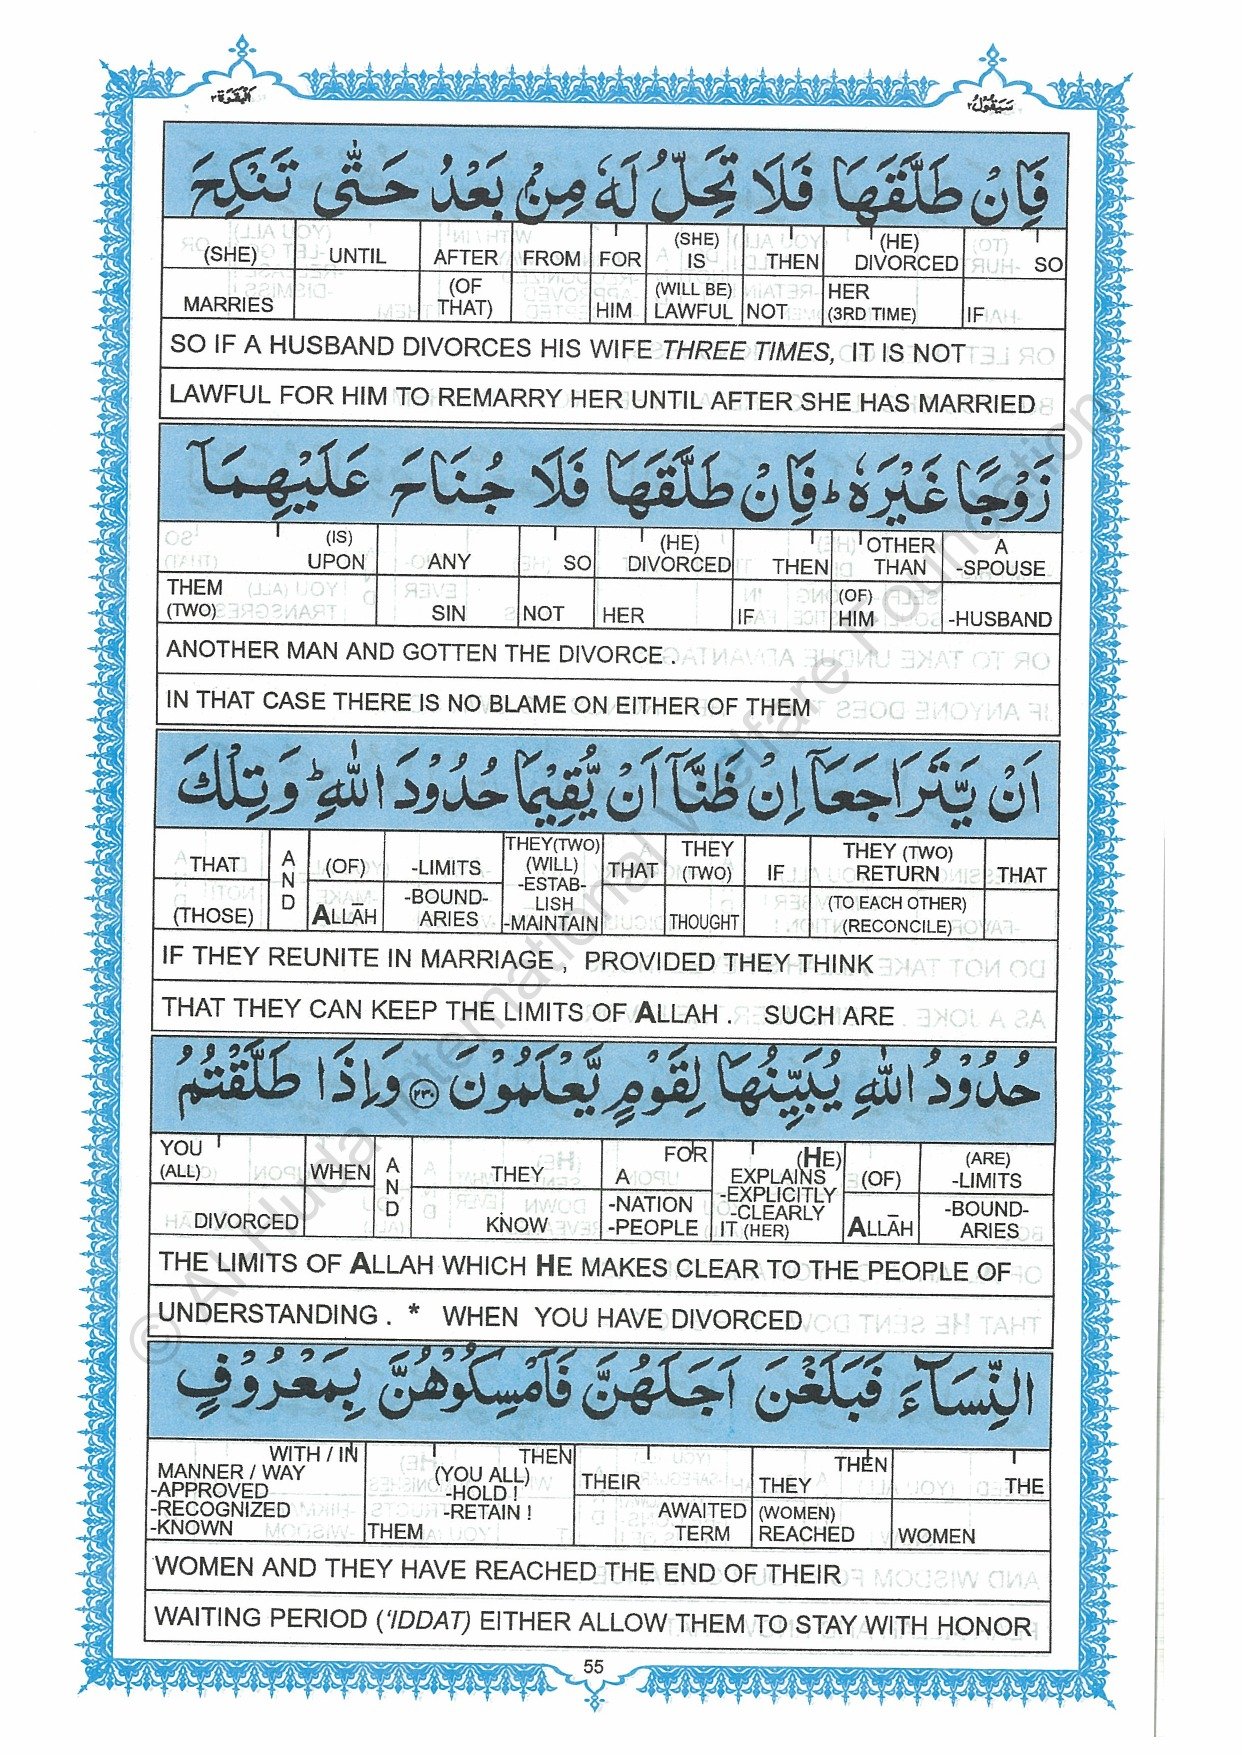 الْبَقَرَة ٢ سَيَقُوْلُ ٢
فَاِنْ طَلَّقَهَا فَلَا تَحِلُّ لَهٗ مِنْۢ بَعْدُ حَتّٰى تَنْكِحَ
(SHE) UNTIL AFTER FROM FOR (SHE) IS THEN (HE) DIVORCED SO
MARRIES (OF THAT) HIM (WILL BE) LAWFUL NOT HER (3RD TIME) IF
SO IF A HUSBAND DIVORCES HIS WIFE THREE TIMES, IT IS NOT
LAWFUL FOR HIM TO REMARRY HER UNTIL AFTER SHE HAS MARRIED
زَوْجًا غَيْرَهٗ ؕ فَاِنْ طَلَّقَهَا فَلَا جُنَاحَ عَلَيْهِمَاۤ
(IS) UPON ANY SO (HE) DIVORCED THEN OTHER THAN A -SPOUSE
THEM (TWO) SIN NOT HER IF (OF) HIM -HUSBAND
ANOTHER MAN AND GOTTEN THE DIVORCE .
IN THAT CASE THERE IS NO BLAME ON EITHER OF THEM
اَنْ يَّتَرَاجَعَاۤ اِنْ ظَنَّاۤ اَنْ يُّقِيْمَا حُدُوْدَ اللّٰهِ ؕ وَتِلْكَ
THAT AND (OF) -LIMITS THEY(TWO) (WILL) -ESTAB-LISH THAT THEY (TWO) IF THEY (TWO) RETURN THAT
(THOSE) ALLĀH -BOUND-ARIES -MAINTAIN THOUGHT (TO EACH OTHER) (RECONCILE)
IF THEY REUNITE IN MARRIAGE , PROVIDED THEY THINK
THAT THEY CAN KEEP THE LIMITS OF ALLAH . SUCH ARE
حُدُوْدُ اللّٰهِ يُبَيِّنُهَا لِقَوْمٍ يَّعْلَمُوْنَ ﴿٢٣٠﴾ وَاِذَا طَلَّقْتُمُ
YOU (ALL) WHEN AND THEY FOR A (HE) EXPLAINS -EXPLICITLY (OF) (ARE) -LIMITS
DIVORCED KNOW -NATION -PEOPLE -CLEARLY IT (HER) ALLĀH -BOUND-ARIES
THE LIMITS OF ALLAH WHICH HE MAKES CLEAR TO THE PEOPLE OF
UNDERSTANDING . * WHEN YOU HAVE DIVORCED
النِّسَآءَ فَبَلَغْنَ اَجَلَهُنَّ فَاَمْسِكُوْهُنَّ بِمَعْرُوْفٍ
WITH / IN MANNER / WAY THEN (YOU ALL) -HOLD ! THEIR THEN THEY THE
-APPROVED -RECOGNIZED -KNOWN -RETAIN ! THEM AWAITED TERM (WOMEN) REACHED WOMEN
WOMEN AND THEY HAVE REACHED THE END OF THEIR
WAITING PERIOD ('IDDAT) EITHER ALLOW THEM TO STAY WITH HONOR
55
© Al-Huda International Welfare Foundation